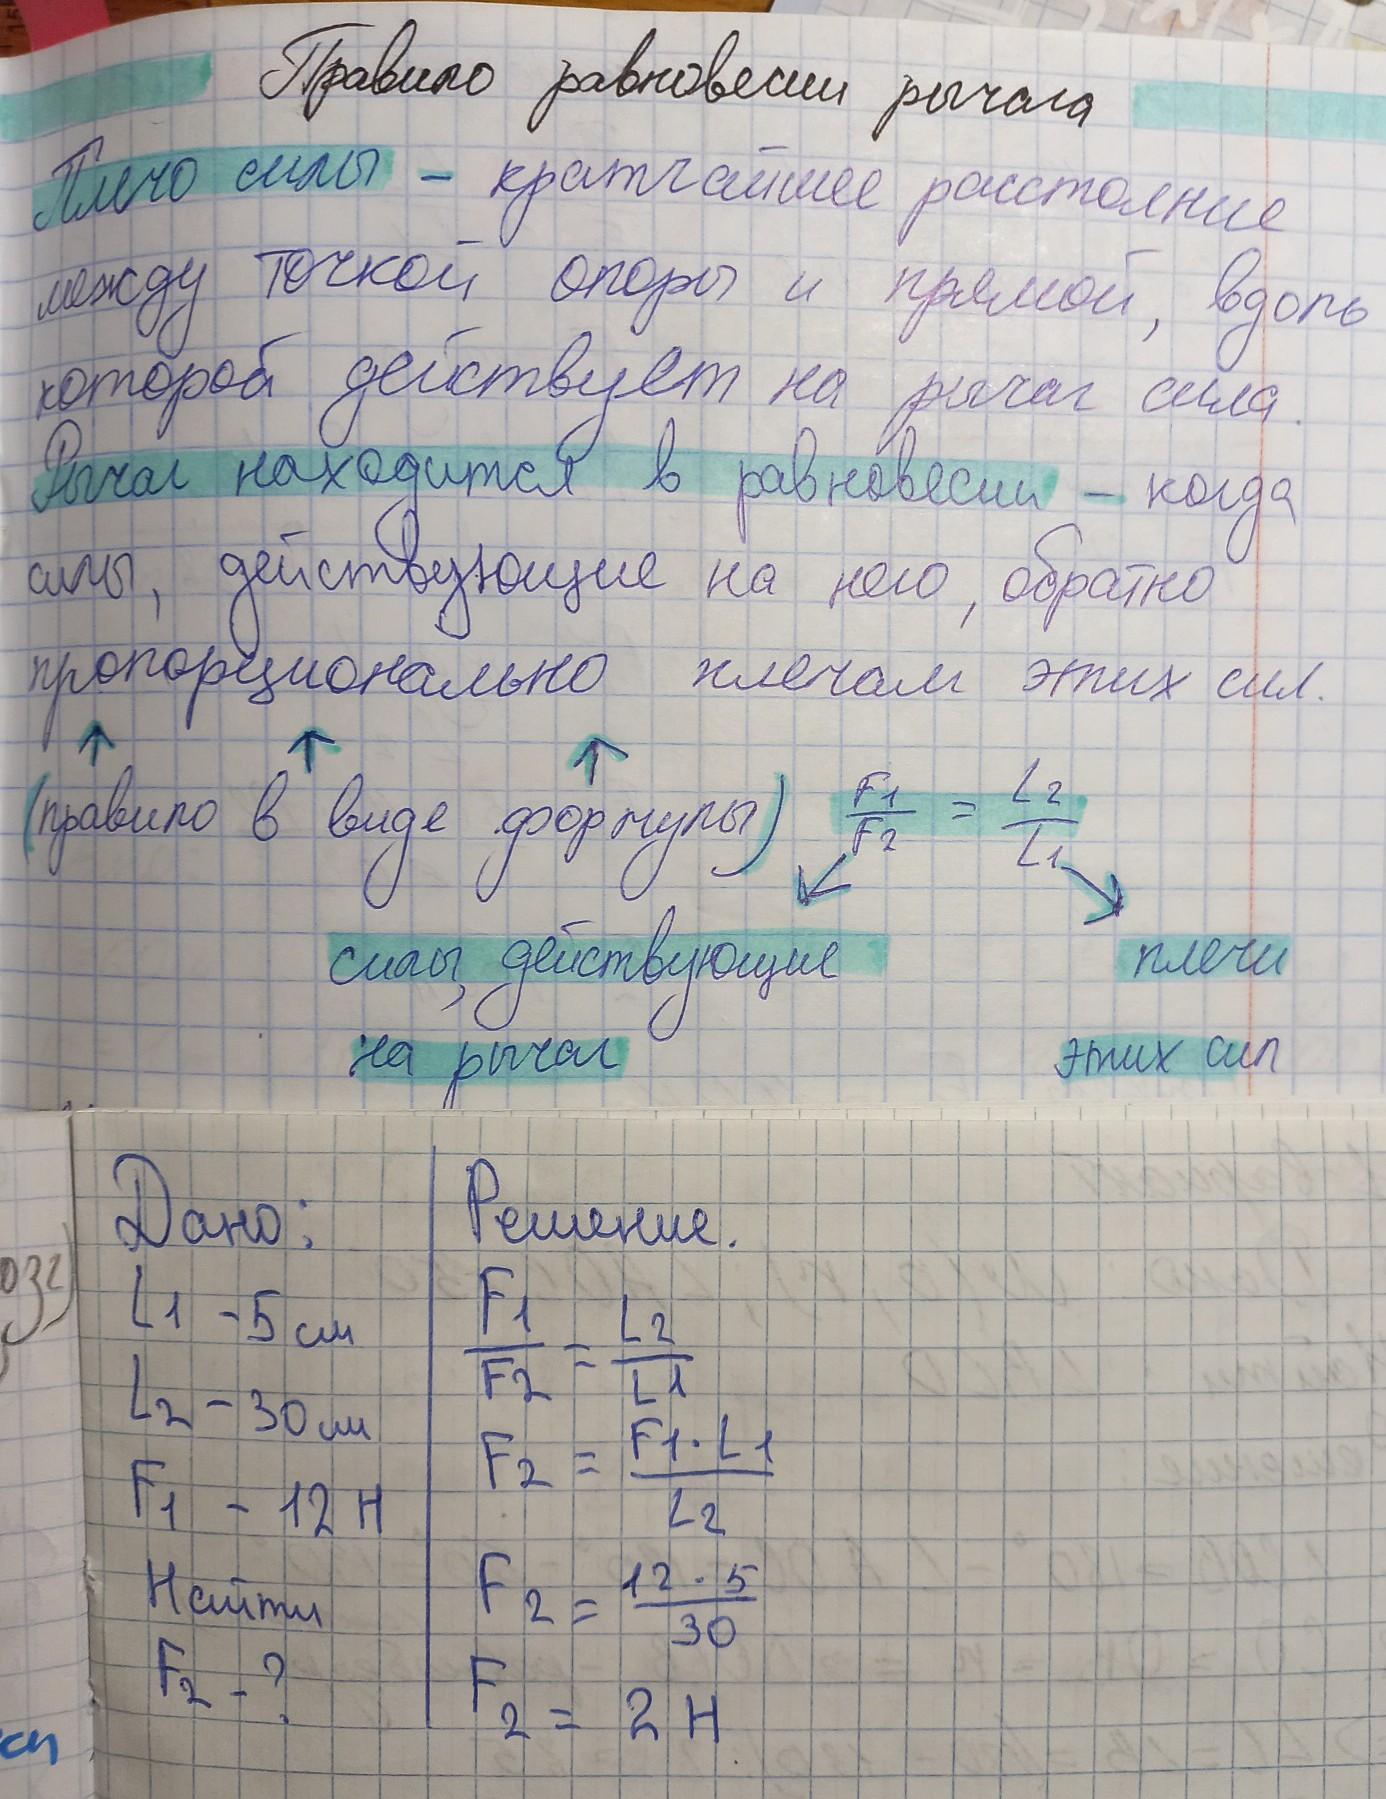 Правило равновесии рычага
Плечо силы – кратчайшее расстояние
между точкой опоры и прямой, вдоль
которой действует на рычаг сила.
Рычаг находится в равновесии – когда
силы, действующие на него, обратно
пропорционально плечам этих сил.
(правило в виде формулы) F1/F2 = L2/L1
силы, действующие плечи
на рычаг этих сил
Дано: Решение.
L1 - 5 см F1/F2 = L2/L1
L2 - 30 см F2 = F1·L1/L2
F1 - 12 Н F2 = 12·5/30
Найти F2 = 2 Н
F2 - ?